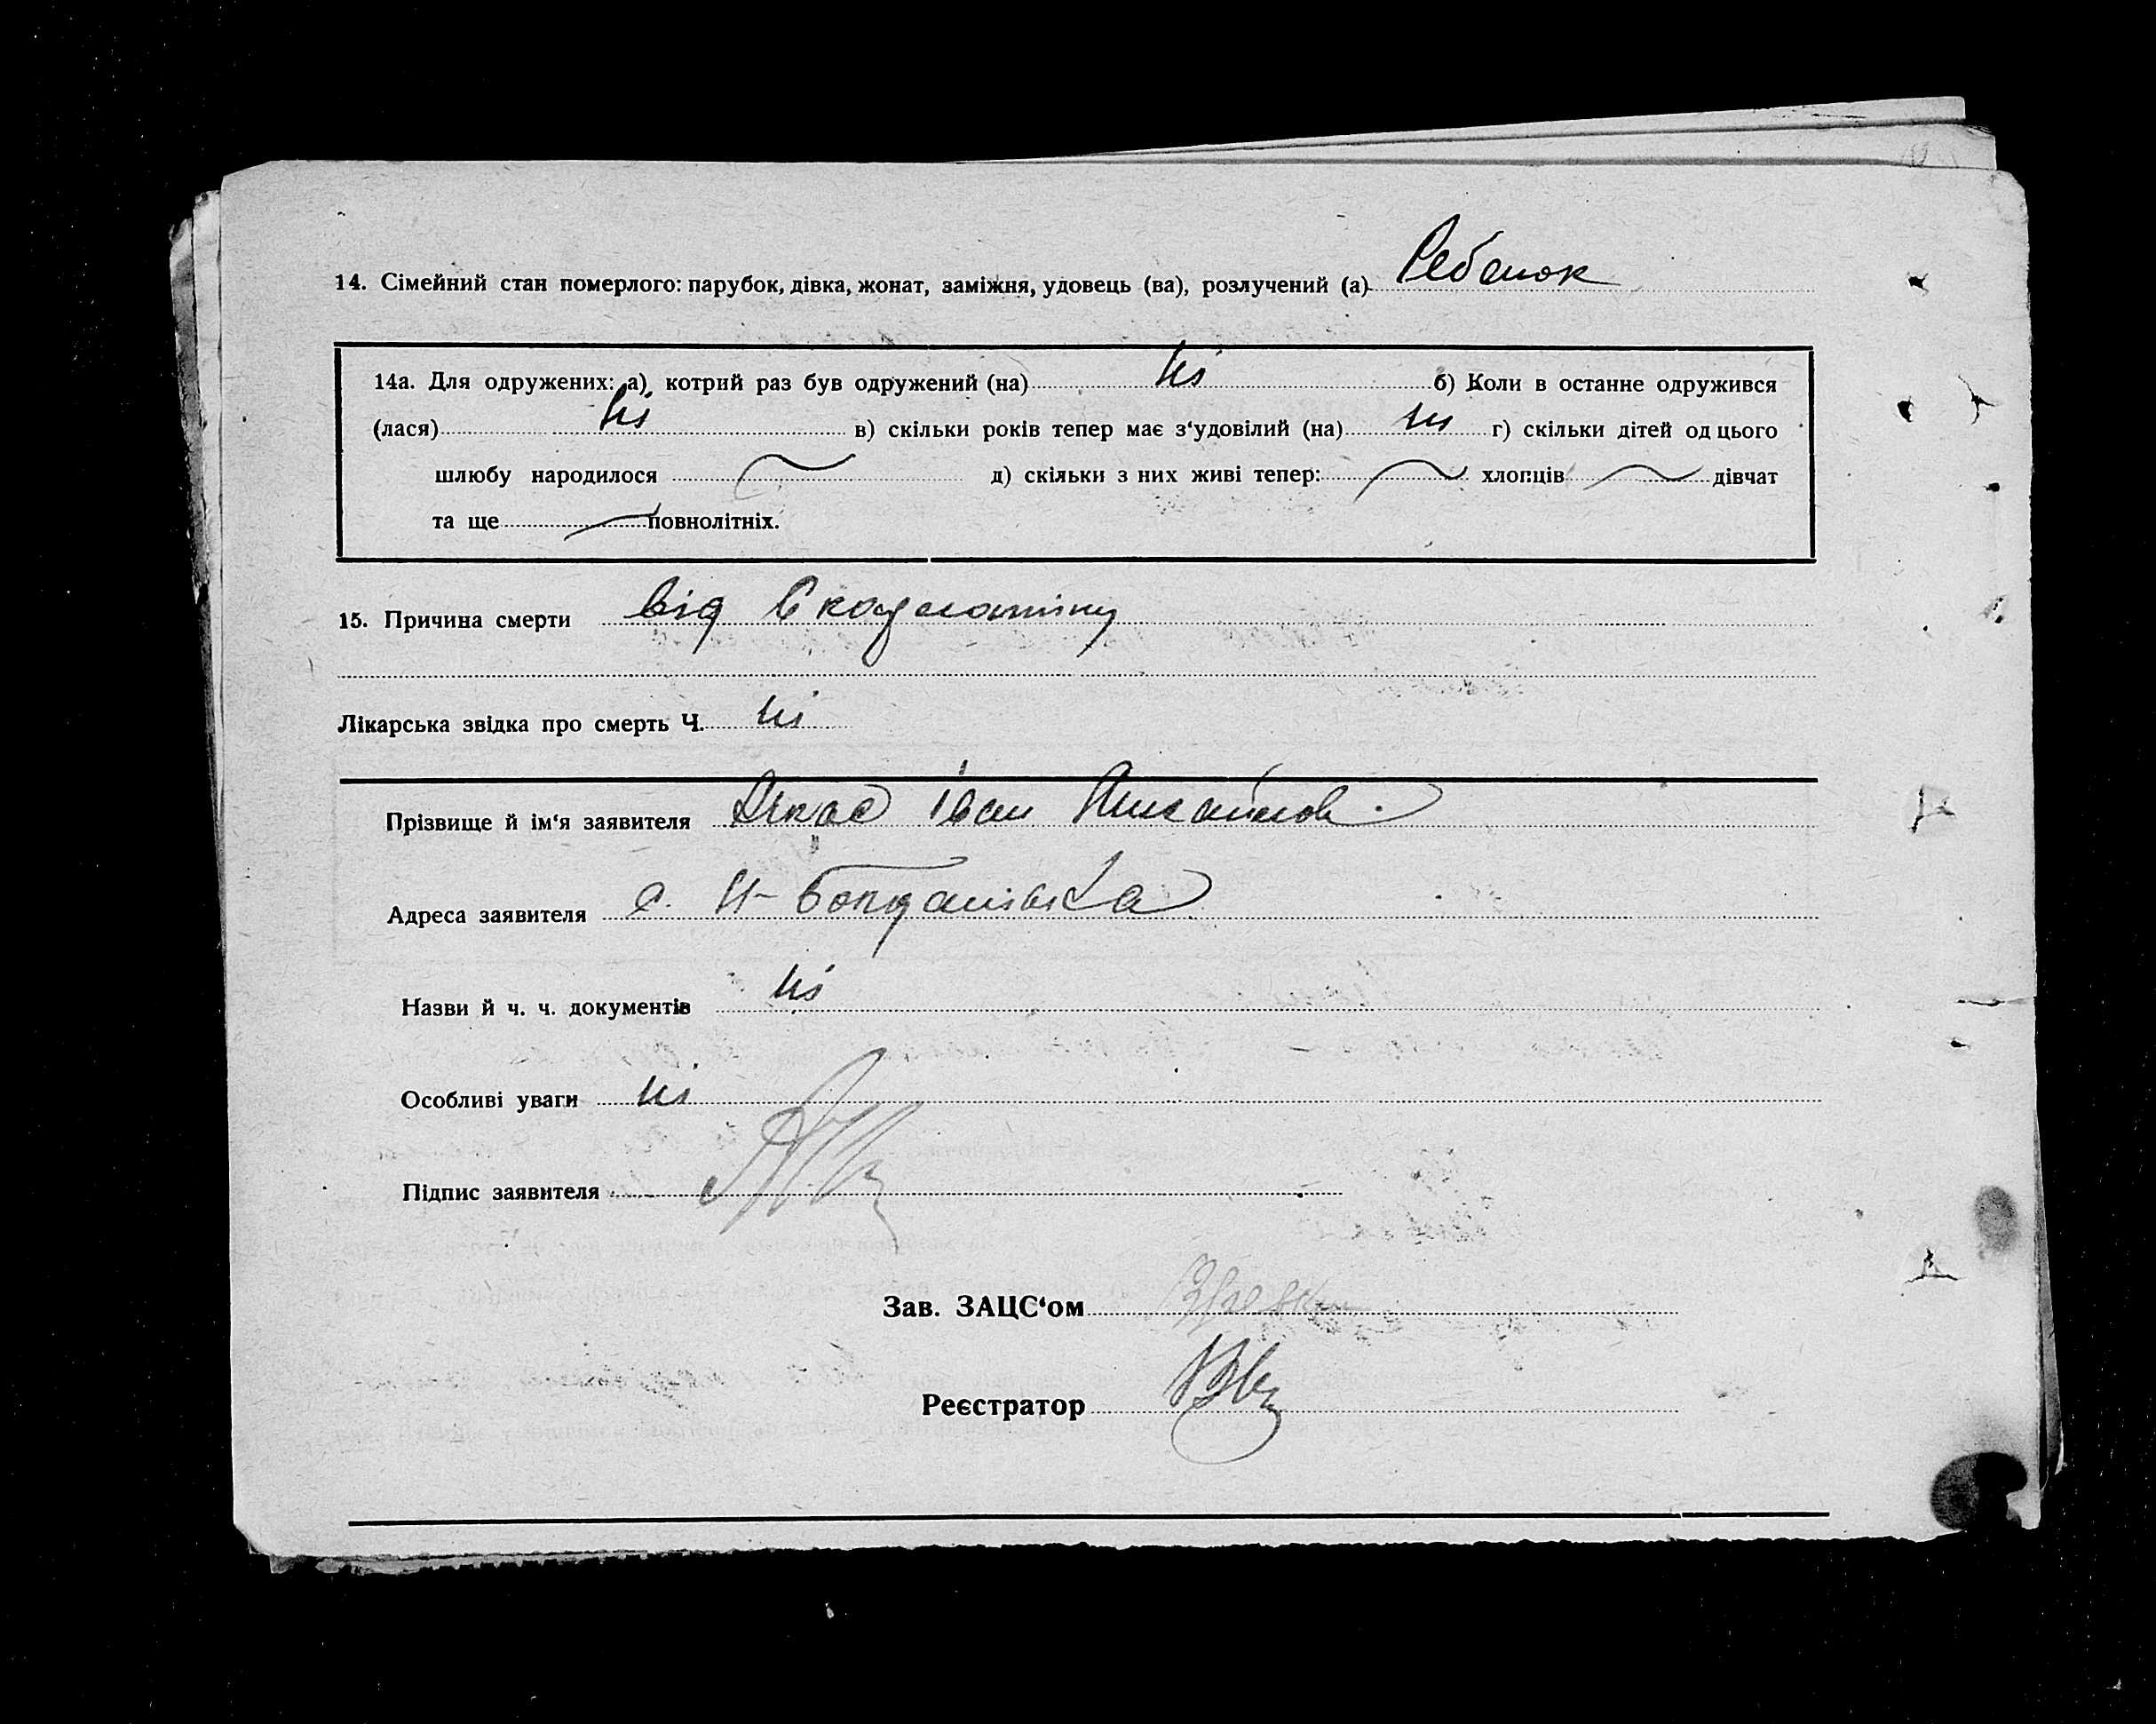 14. Сімейний стан померлого: парубок, дівка, жонат, заміжня, удовець (ва), розлучений (а) Ребенок
14а. Для одружених: а) котрий раз був одружений (на) ні б) Коли в останнє одружився
(лася) ні в) скільки років тепер має з‘удовілий (на) ні г) скільки дітей од цього
шлюбу народилося д) скільки з них живі тепер: хлопців дівчат
та ще повнолітніх.
15. Причина смерти від Скарлатіни
Лікарська звідка про смерть Ч. ні
Прізвище й ім‘я заявителя Іван
Адреса заявителя с. Н-Богданівка
Назви й ч. ч. документів ні
Особливі уваги ні
Підпис заявителя
Зав. ЗАЦС‘ом
Реєстратор